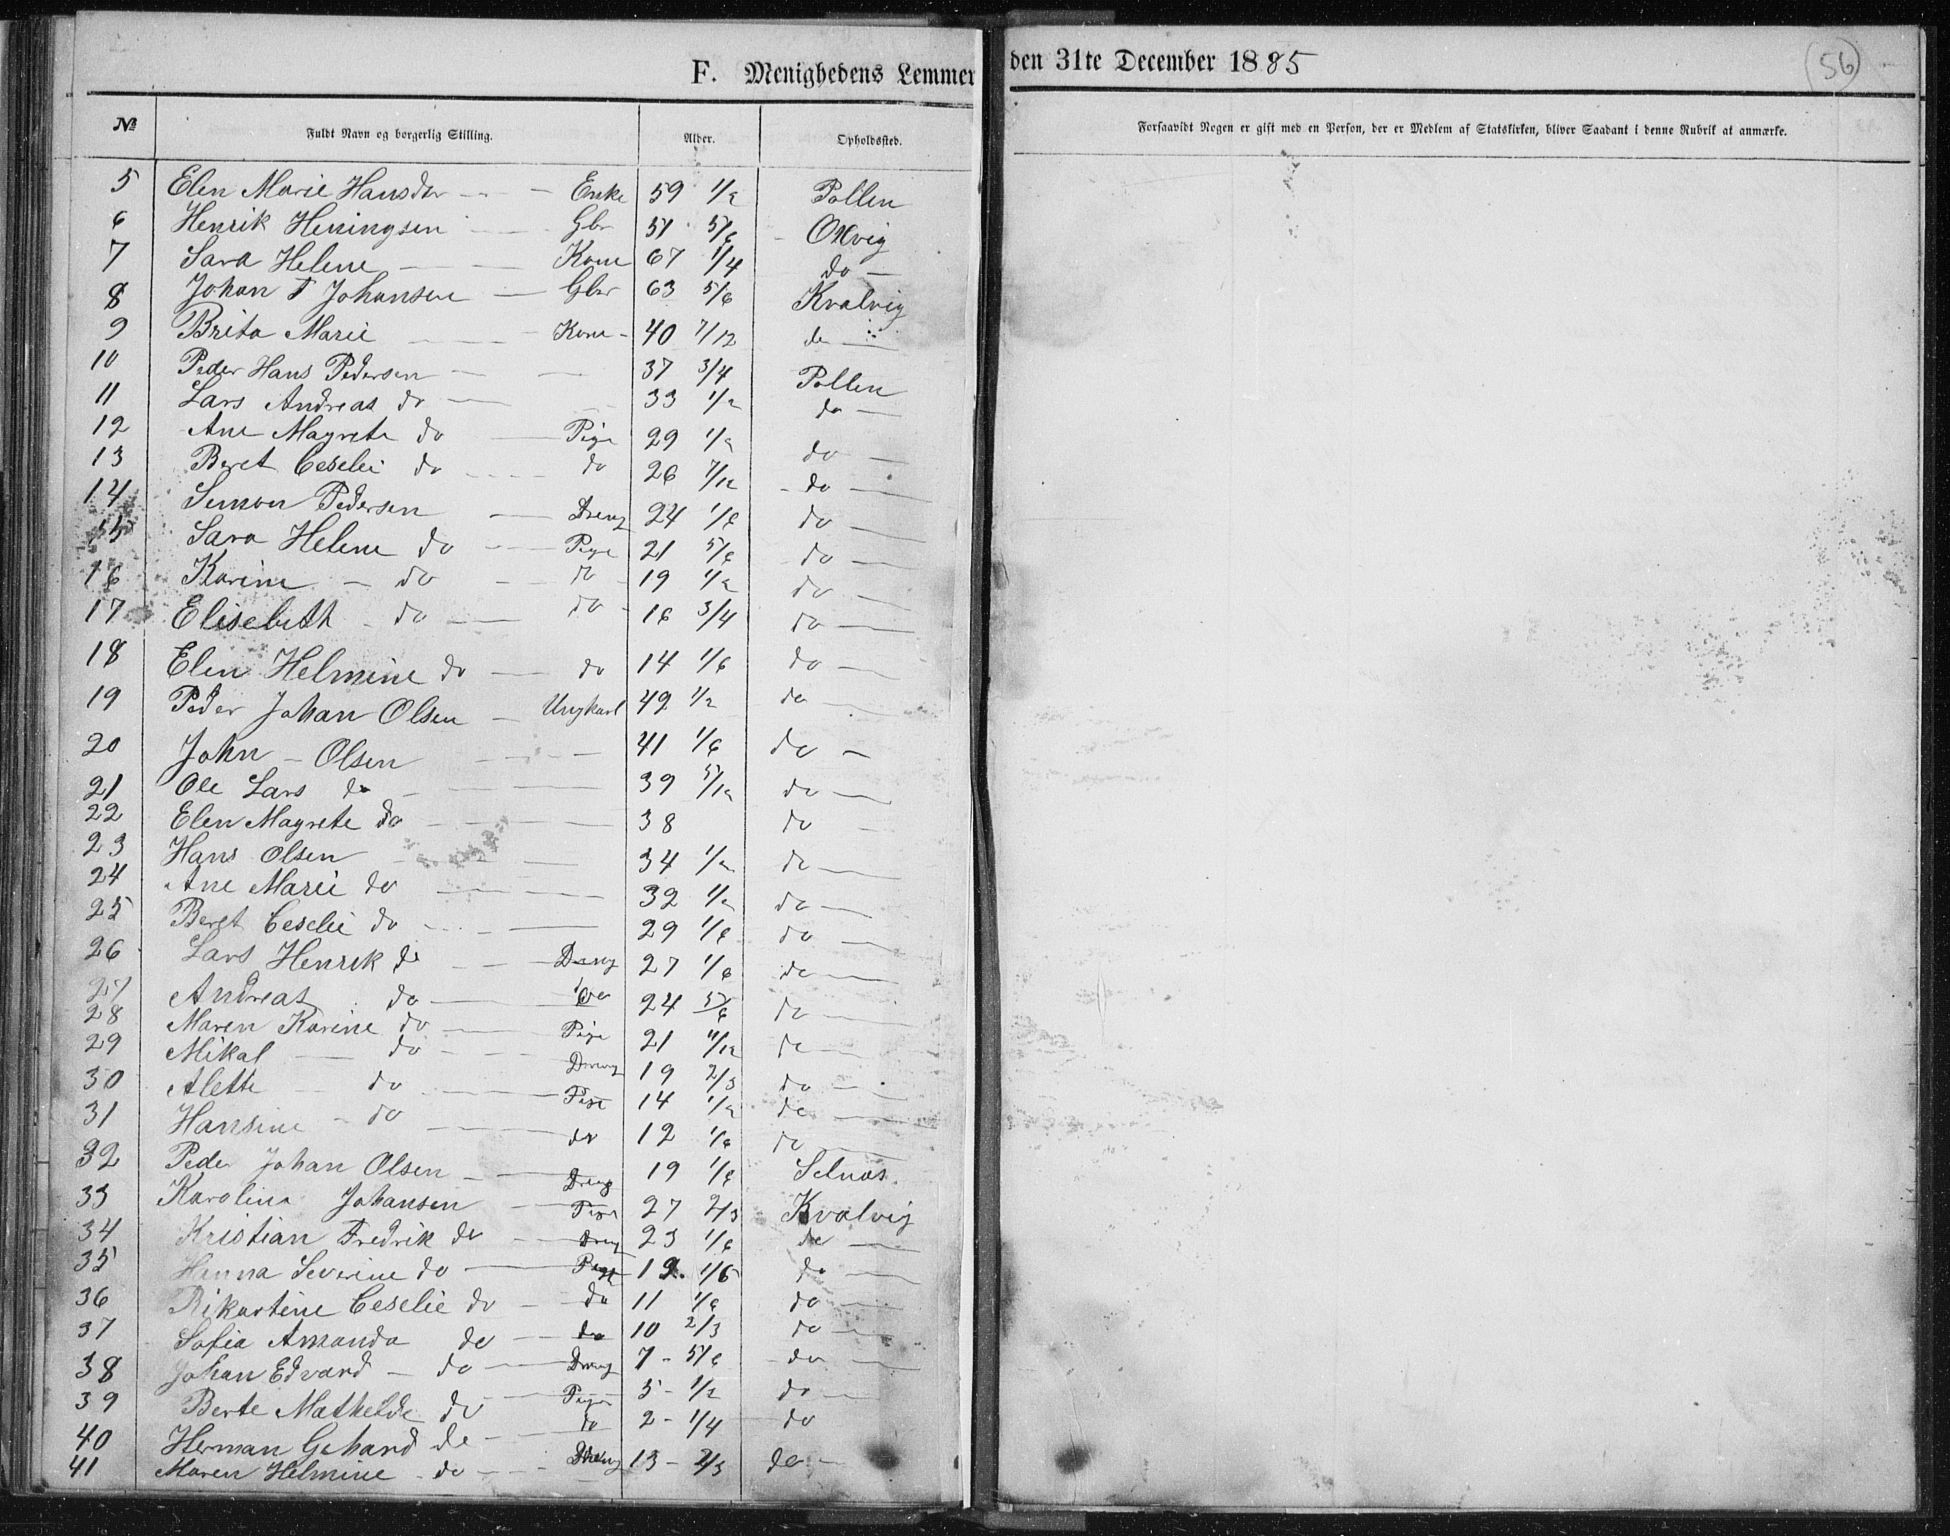 F. Menighedens Lemmer den 31te December 1885
56
№ Fuldt Navn og borgerlig Stilling. Alder. Opholdssted. Forsaavidt Nogen er gift med en Person, der er Medlem af Statskirken, bliver Saadant i denne Rubrik at anmærke.
5 Elen Marie Hansdtr Enke 59 1/2 Pollen
6 Henrik Heningsen Gbr 51 5/6 Oxvig
7 Sara Helene Kone 67 1/4 do
8 Johan F Johansen Gbr 63 5/6 Kvalvig
9 Brita Marie Kone 40 7/12 do
10 Peder Hans Pedersen 37 3/4 Pollen
11 Lars Andreas do 33 1/2 do
12 Ane Magrete do Pige 29 1/2 do
13 Beret Ceselie do do 26 7/12 do
14 Simon Pedersen Dreng 24 1/6 do
15 Sara Helene do Pige 21 5/6 do
16 Karine do do 19 1/2 do
17 Elisebeth do do 16 3/4 do
18 Elen Helmine do do 14 1/6 do
19 Peder Johan Olsen Ungkarl 49 1/2 do
20 John Olsen 41 1/6 do
21 Ole Lars do 39 5/12 do
22 Elen Magrete do 38 do
23 Hans Olsen 34 1/2 do
24 Ane Marie do 32 1/2 do
25 Beret Ceselie do 29 1/6 do
26 Lars Henrik do Dreng 27 1/6 do
27 Andreas do do 24 5/6 do
28 Maren Karine do Pige 21 11/12 do
29 Mikal do Dreng 19 2/3 do
30 Alette do Pige 14 1/2 do
31 Hansine do do 12 1/6 do
32 Peder Johan Olsen Dreng 19 1/6 Selnæs
33 Karolina Johansen Pige 27 2/3 Kvalvig
34 Kristian Fredrik do Dreng 23 1/6 do
35 Hanna Severine do Pige 19 1/6 do
36 Rikartine Ceselie do do 11 1/6 do
37 Sofia Amanda do do 10 2/3 do
38 Johan Edvard do Dreng 7 5/6 do
39 Berte Mathelde do Pige 5 1/2 do
40 Herman Gehard do do 2 1/4 do
41 Maren Helmine do Dreng 13 2/3 do